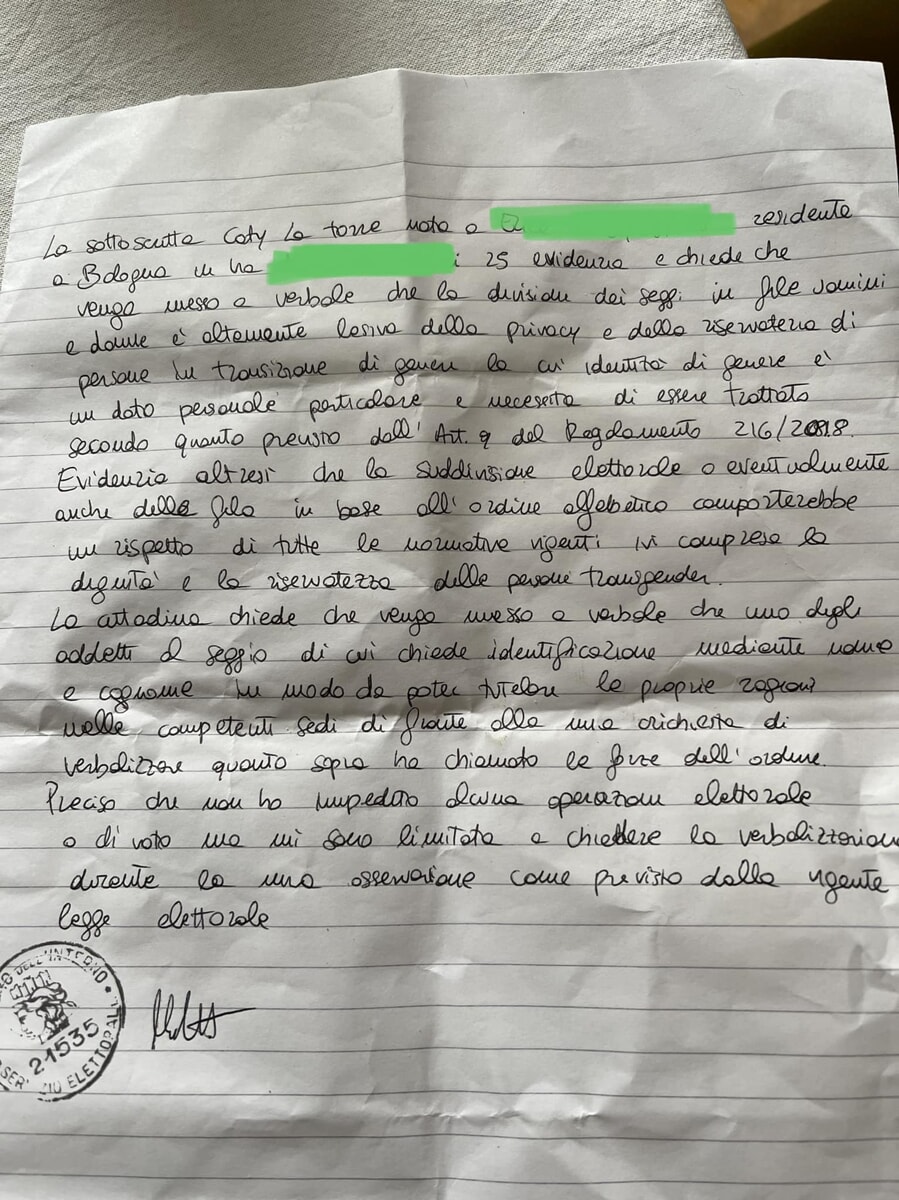 La sottoscritta Caty La torre nata a residente
a Bologna in 25 evidenzia e chiede che
venga messo a verbale che la divisione dei seggi in file uomini
e donne è altamente lesiva della privacy e della riservatezza di
persone in transizione di genere la cui identità di genere è
un dato personale particolare e necessita di essere trattato
secondo quanto previsto dall' Art. 9 del Regolamento 216/2018.
Evidenzia altresì che la suddivisione elettorale o eventualmente
anche della fila in base all' ordine alfabetico comporterebbe
un rispetto di tutte le normative vigenti ivi compresa la
dignità e la riservatezza delle persone transgender.
La cittadina chiede che venga messo a verbale che uno degli
addetti al seggio di cui chiede identificazione mediante nome
e cognome in modo da poter tutelare le proprie ragioni
nelle competenti sedi di fronte alla mia richiesta di
verbalizzare quanto sopra ha chiamato le forze dell' ordine.
Preciso che non ho impedito alcuna operazione elettorale
o di voto ma mi sono limitata a chiedere la verbalizzazione
durante la mia osservazione come previsto dalla vigente
legge elettorale
DELL'INTERNO
21535
ELETTORALE